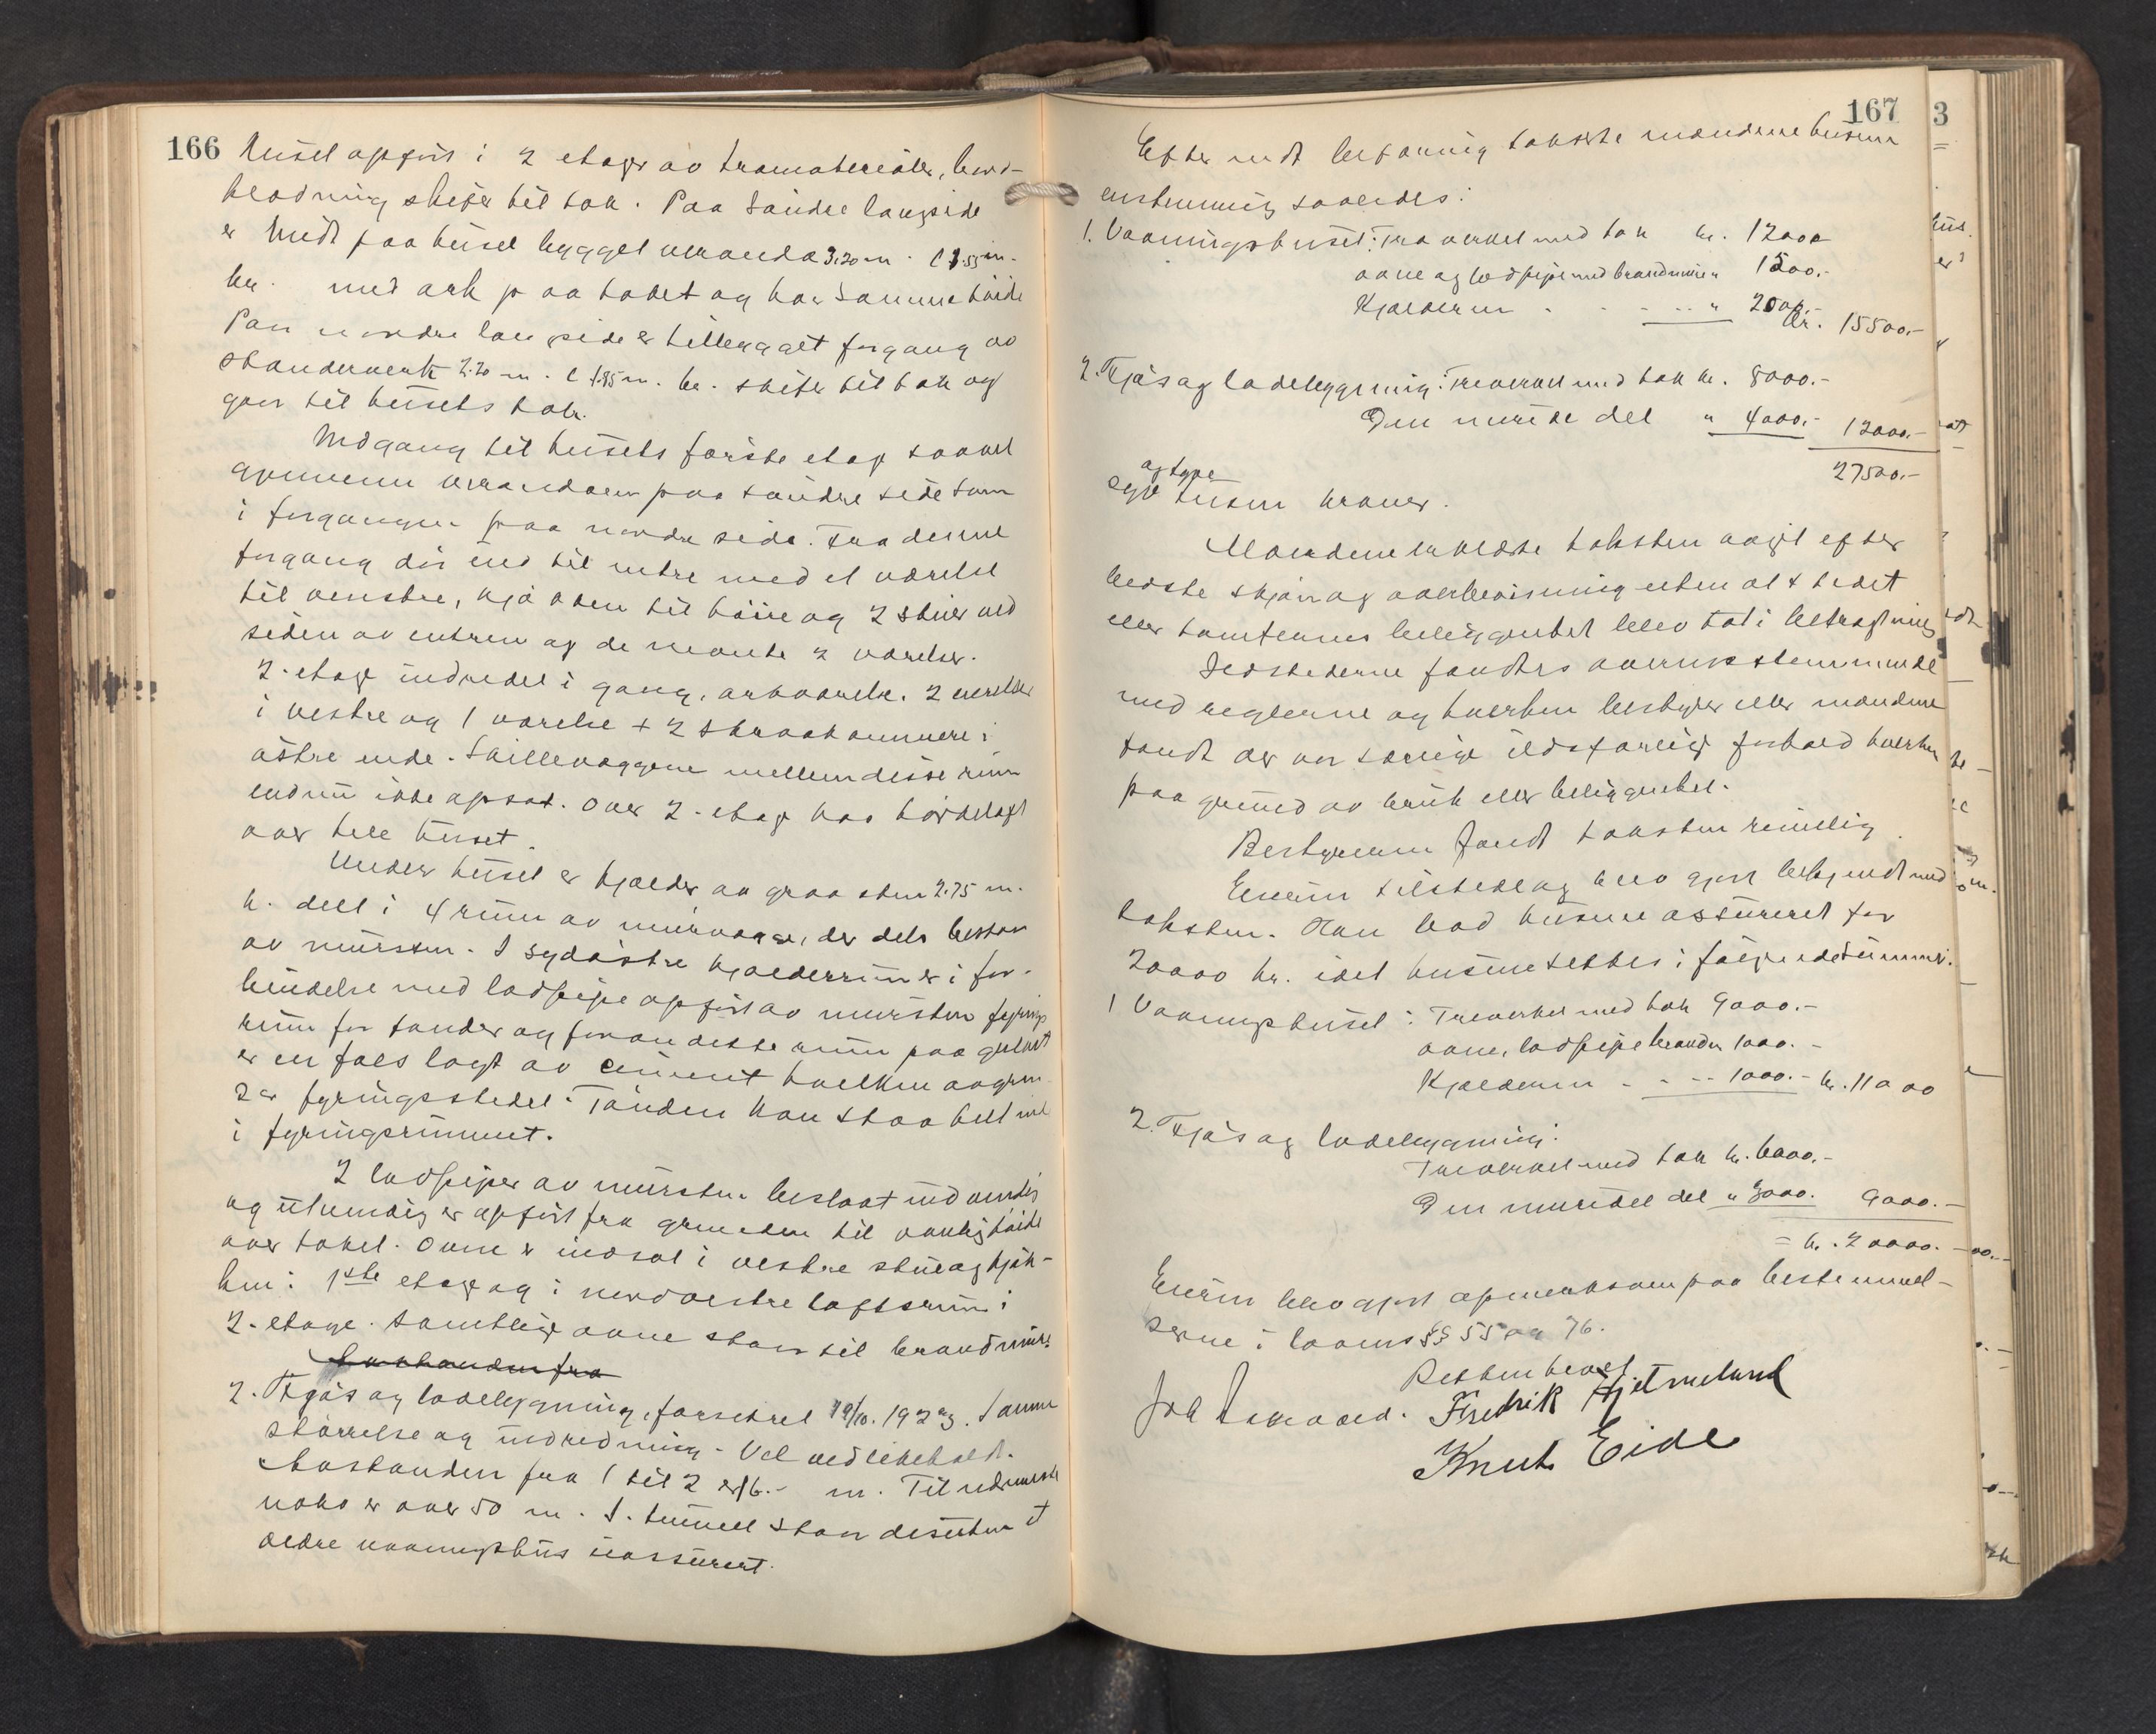 166
Huset opført i 2 etager av træmaterialer, bord-
klædning skifer til tak. Paa søndre langside
er midt paa huset bygget veranda 3.20 m. l 1.55 m.
br. med ark paa taket og har samme høide
Paa nordre langside er tilbygget forgang av
standerverk 2.20 m. l 1.85 m. br. skifer til tak og
gaar til husets tak.
Indgang til husets første etage saavel
gjennem verandaen paa søndre side som
i forgangen paa nordre side. Fra denne
forgang dør ind til entre med et værelse
til venstre, kjøkken til høire og 2 stuer ved
siden av entreen og de nævnte 2 værelser.
2. etage indredet i gang, arkværelse, 2 værelser
i vestre og 1 værelse + 2 skraakammere i
østre ende. Skillevæggene mellem disse rum
endnu ikke opsat. Over 2. etage har
over hele huset.
Under huset er kjælder av graasten 2.75 m.
h. delt i 4 rum av murvægge, der dels bestaar
av mursten. I sydøstre kjælderrum er i for-
bindelse med ladpipe opført av mursten fyrings
rum for tønder og foran dette rum paa gulvet
er en fals lagt av cement hvilken avgræn-
ser fyringsstedet. Tønden kan staa helt ind
i fyringsrummet.
2 ladpiper av mursten beslaat indvendig
og utvendig er opført fra grunden til vanlig høide
over taket. Ovne er indsat i vestre stue og kjøk-
ken i 1ste etage og i nordvestre loftsrum i
2. etage. Samtlige ovne staar til brandmure.
Avstanden fra
2. Fjøs og ladebygning, forsikret 19/10. 1923. Samme
størrelse og indredning. Vel vedlikeholdt.
Avstanden fra 1 til 2 er 16.- m. Til nærmeste
nabo er over 50 m. I tunnet staar desuten et
ældre vaaningshus uassurert.
167
Efter endt befaring takserte mændene husene
enstemmig saaledes:
1. Vaaningshuset: Træverket med tak kr. 12000
ovne og ladpipe med brandmure " 1500.-
Kjælderen . . . . . " 2000.-
kr. 15500.-
2. Fjøs og ladebygning: Træverket med tak kr. 8000.-
Den murede del " 4000.- 12000.-
27500.-
og tyve
syv tusen kroner.
Mændene erklærte taksten avgit efter
bedste skjøn og overbevisning uten at stedet
eller tomtenes beliggenhet blev tat i betragtning
Ildstederne fandtes overensstemmende
med reglerne og hverken bestyrer eller mændene
fandt der var særlige ildsfarlige forhold hverken
paa grund av bruk eller beliggenhet.
Bestyreren fandt taksten rimelig
Eieren tilstede og blev gjort bekjendt med
taksten. Han bad husene assureret for
20000 kr. idet husene sættes i følgende summer.
1 Vaaningshuset: Træverket med tak 9000.-
ovne, ladpipe brandm 1000.-
Kjælderen . . . . 1000.- kr. 11000
2. Fjøs og ladebygning:
Træverket med tak kr. 6000.-
Den murede del " 3000. 9000.-
= kr. 20000.-
Eieren blev gjort opmerksom paa bestemmel-
serne i lovens §§ 55 og 76.
Retten hevet
Fredrik Hjelmeland
Knut Eide
3